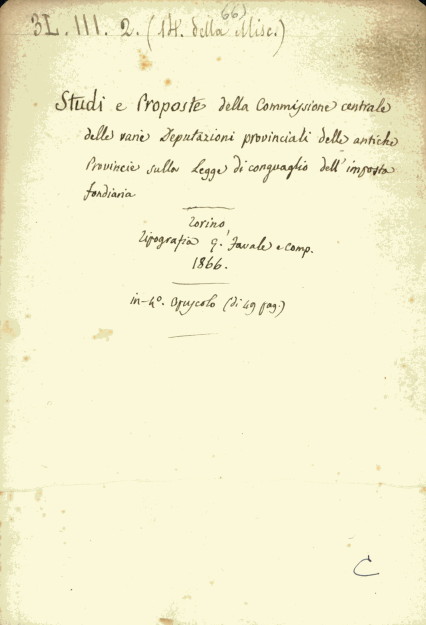 66)
3L. III. 2. (14. della Misc.)
Studi e Proposte della Commissione centrale
delle varie Deputazioni provinciali delle antiche
Provincie sulla Legge di conguaglio dell'imposta
fondiaria
Torino
Tipografia G. Favale e comp.
1866.
in-4º. Opuscolo (di 49 pag.)
C